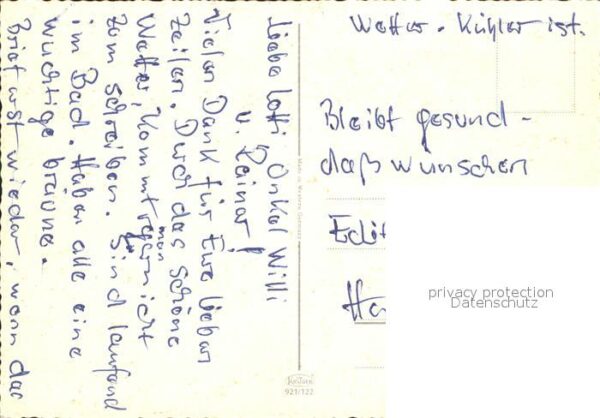 Liebe Lotti, Onkel Willi
u. Rainer!
Vielen Dank für Eure lieben
Zeilen. Durch das schöne
Wetter, kommt man gar nicht
zum schreiben. Sind laufend
im Bad. Haben alle eine
wuchtige bräune.
Brief erst wieder, wenn das
Wetter. Kühler ist.
Bleibt gesund -
daß wünschen
Edit
Ha
Made in Western Germany
Krüger
921/122
privacy protection
Datenschutz